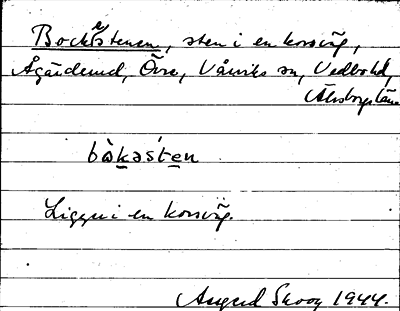 Bockestenen, sten i en korsväg,
Ågärdemd, Övre, Vårviks sn, Vedbo hd,
Älvsborgs län
bòkəsten
Ligger i en korsväg.
Skoog 1944.